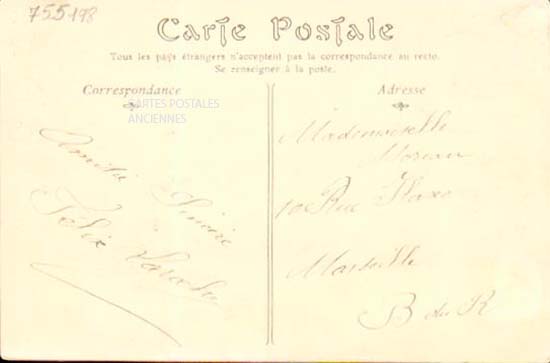 755198
Carte Postale
Tous les pays étrangers n'acceptent pas la correspondance au recto.
Se renseigner à la poste.
Correspondance
CARTES POSTALES
ANCIENNES
Amitié Sincère
Félix
Adresse
Mademoiselle
Moreau
10 Rue
Marseille
B du R